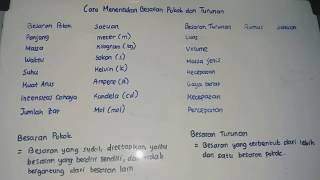 Cara Menentukan Besaran Pokok dan Turunan
Besaran Pokok satuan
Panjang meter (m)
Massa kilogram (kg)
Waktu sekon (s)
Suhu Kelvin (k)
Kuat Arus Ampere (A)
Intensitas Cahaya Kandela (cd)
Jumlah Zat Mol (mol)
Besaran Turunan Rumus satuan
Luas
Volume
Massa jenis
Kecepatan
Gaya berat
Kecepatan
Percepatan
Besaran Pokok
= Besaran yang sudah ditetapkan yaitu
besaran yang berdiri sendiri, dan tidak
bergantung dari besaran lain
Besaran Turunan
= Besaran yang terbentuk dari lebih
dari satu besaran pokok